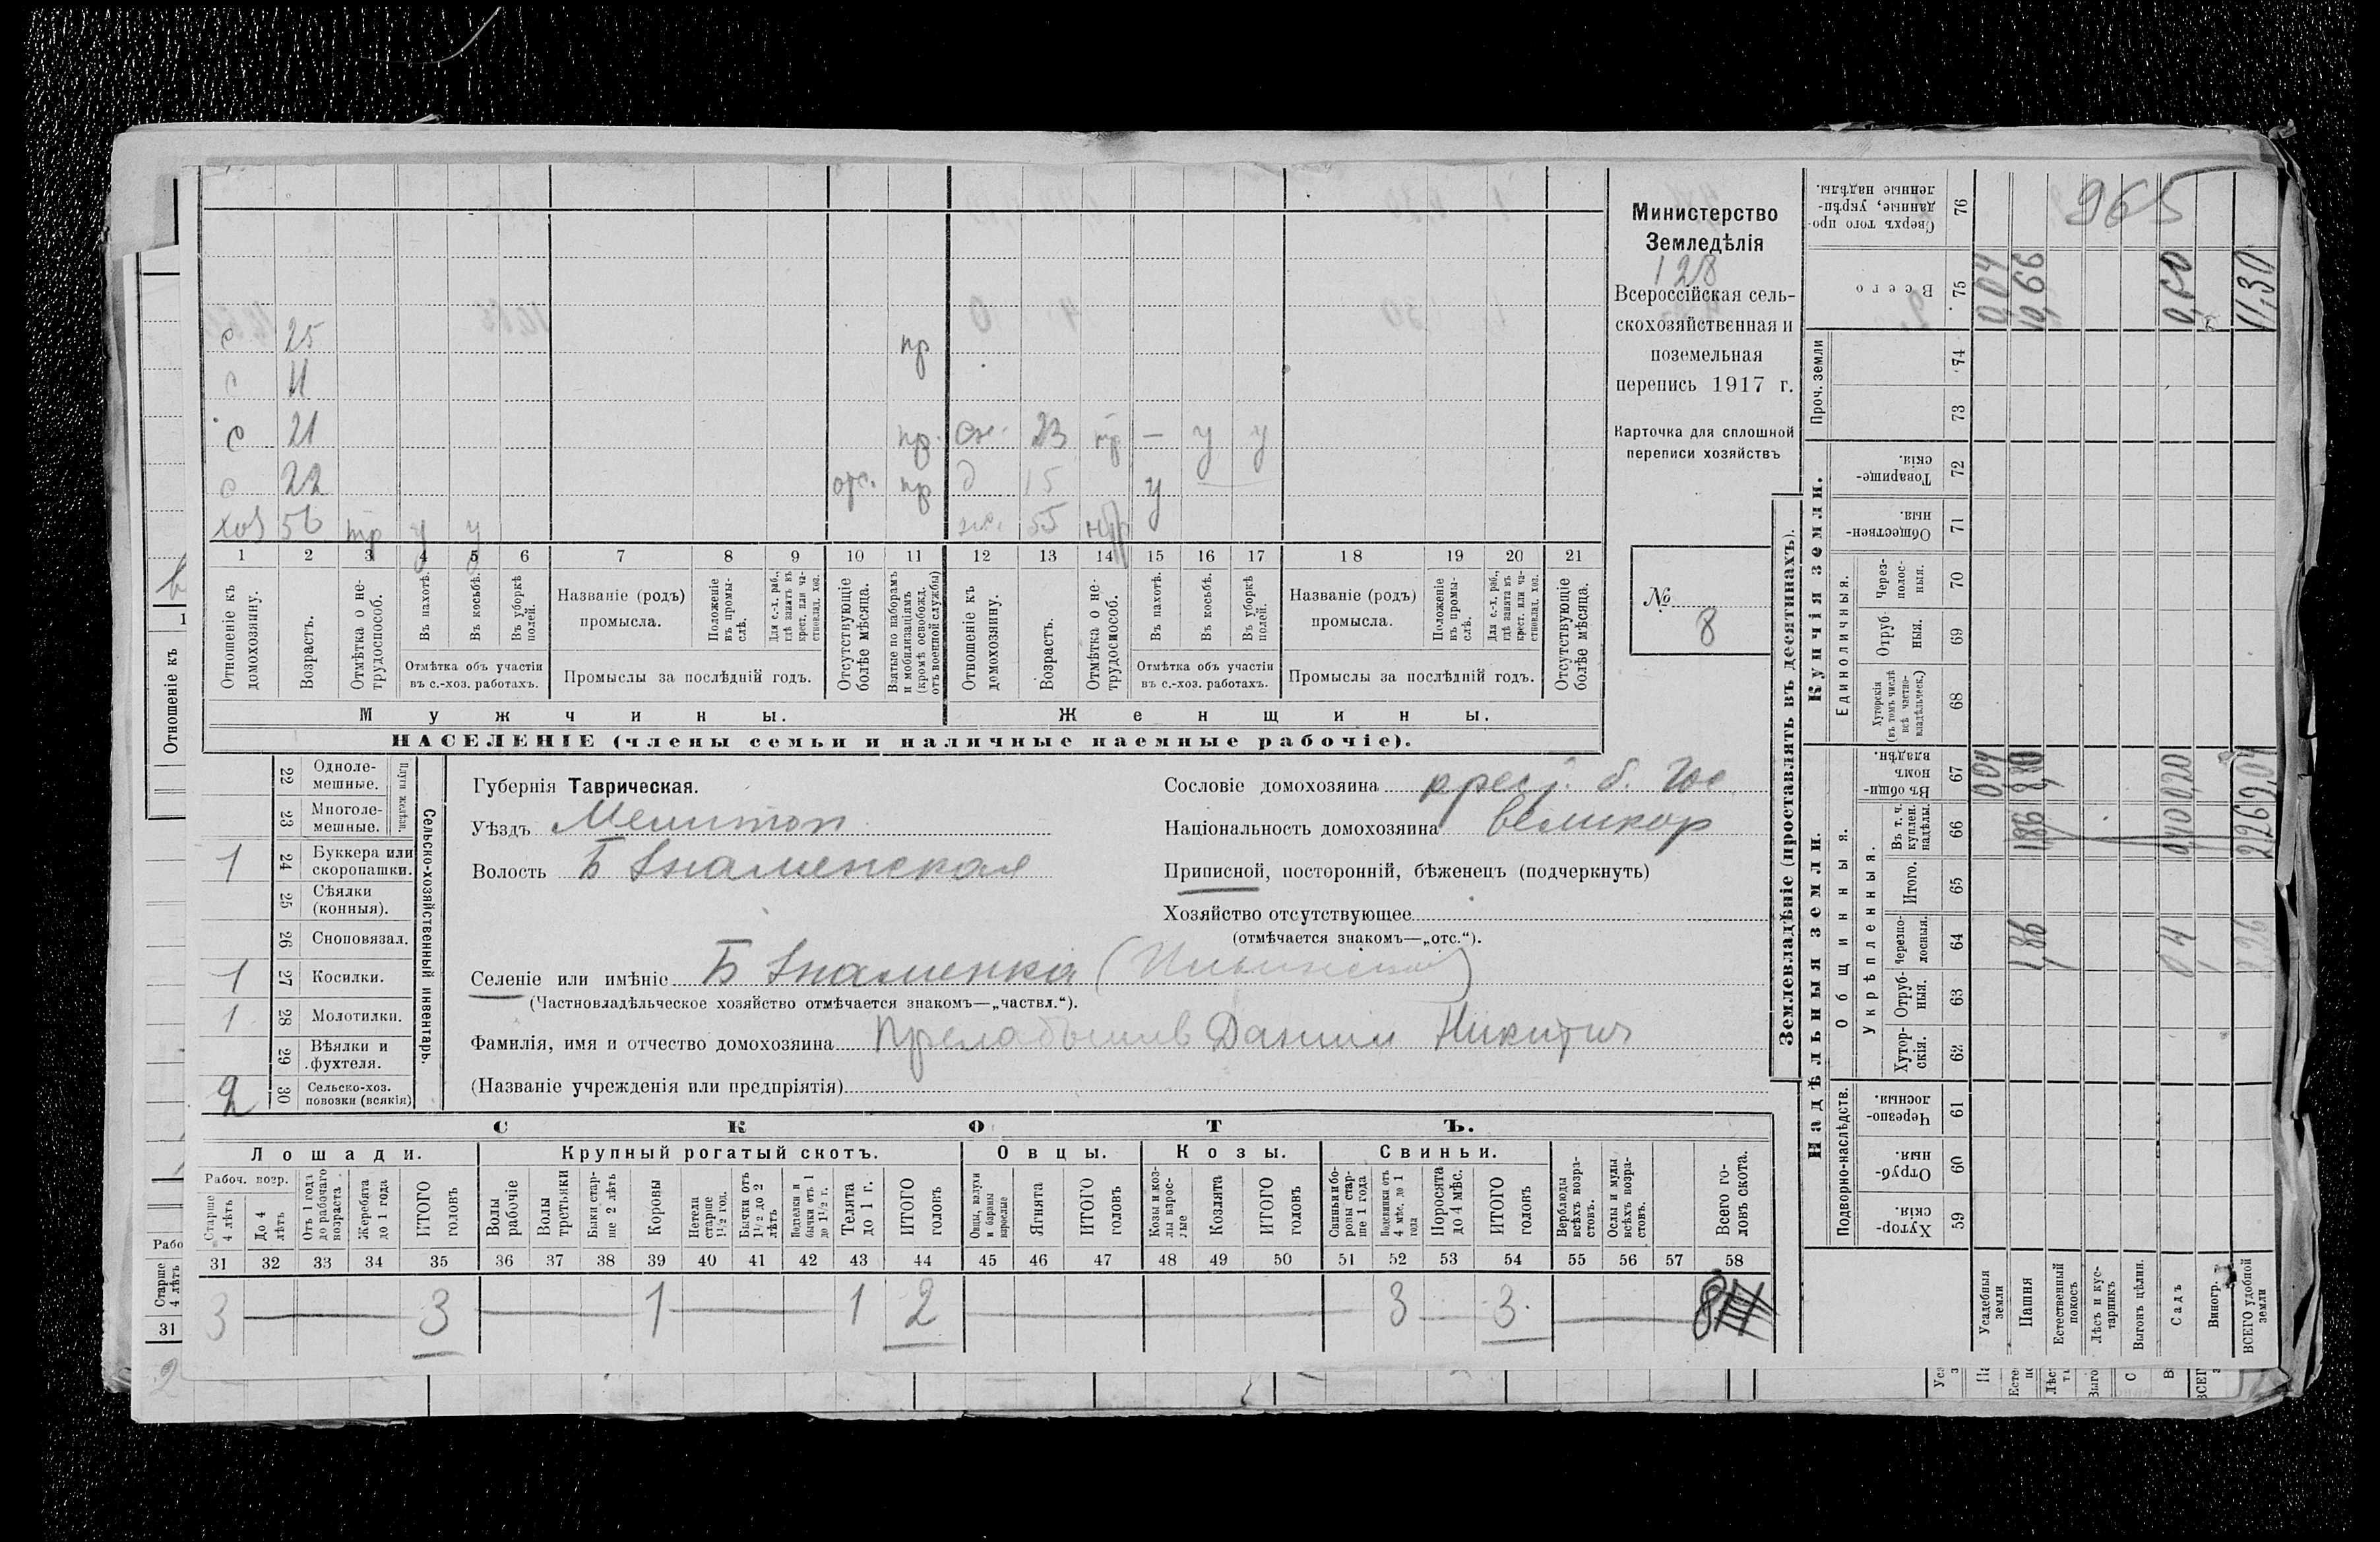 Министерство
Земледѣлія
128
Всероссійская сель-
скохозяйственная и
поземельная
перепись 1917 г.
Карточка для сплошной
переписи хозяйствъ
№
8
с 25 пр
с 11
с 21 пр. сн. 23 нр — у у
с 22 отс. пр д 15 у
хоз 56 тр у у ж. 55 нтр
1 2 3 4 5 6 7 8 9 10 11 12 13 14 15 16 17 18 19 20 21
Отношеніе къ домохозяину.
Возрастъ.
Отмѣтка о не-трудоспособ.
Въ пахотѣ.
Въ косьбѣ.
Въ уборкѣ полей.
Отмѣтка объ участіи
въ с.-хоз. работахъ.
Названіе (родъ)
промысла.
Положеніе въ промы-слѣ.
Для с.-х. раб., гдѣ занятъ въ крест. или ча-стновлад. хоз.
Промыслы за послѣдній годъ.
Отсутствующіе болѣе мѣсяца.
Взятые по наборамъ и мобилизаціямъ (кромѣ освобожд. отъ военной службы)
Отношеніе къ домохозяину.
Возрастъ.
Отмѣтка о не-трудоспособ.
Въ пахотѣ.
Въ косьбѣ.
Въ уборкѣ полей.
Отмѣтка объ участіи
въ с.-хоз. работахъ.
Названіе (родъ)
промысла.
Положеніе въ промы-слѣ.
Для с.-х. раб., гдѣ занята въ крест. или ча-стновлад. хоз.
Промыслы за послѣдній годъ.
Отсутствующіе болѣе мѣсяца.
Мужчины. Женщины.
НАСЕЛЕНІЕ (члены семьи и наличные наемные рабочіе).
Сельско-хозяйственный инвентарь.
Плуги желѣзн.
22 Одноле-мешные.
23 Многоле-мешные.
1 24 Буккера или скоропашки.
25 Сѣялки (конныя).
26 Сноповязал.
1 27 Косилки.
1 28 Молотилки.
29 Вѣялки и фухтеля.
2 30 Сельско-хоз. повозки (всякія)
Губернія Таврическая.
Уѣздъ Мелитоп
Волость Б Знаменская
Сословіе домохозяина крест. б. гос
Національность домохозяина великор
Приписной, посторонній, бѣженецъ (подчеркнуть)
Хозяйство отсутствующее
(отмѣчается знакомъ—„отс.“).
Селеніе или имѣніе Б Знаменка
(Частновладѣльческое хозяйство отмѣчается знакомъ—„частвл.“).
Фамилія, имя и отчество домохозяина Данило Никитич
(Названіе учрежденія или предпріятія)
СКОТЪ.
Лошади. Крупный рогатый скотъ. Овцы. Козы. Свиньи.
Рабоч. возр.
Старше 4 лѣтъ
До 4 лѣтъ
Отъ 1 года до рабочаго возраста
Жеребята до 1 года
ИТОГО головъ
Волы рабочіе
Волы третьяки
Быки стар-ше 2 лѣтъ
Коровы
Нетели старше 1½ год.
Бычки отъ 1½ до 2 лѣтъ
Подтелки и бычки отъ 1 до 1½ г.
Телята до 1 г.
ИТОГО головъ
Овцы, валухи и бараны взрослые
Ягнята
ИТОГО головъ
Козы и коз-лы взрос-лые
Козлята
ИТОГО головъ
Свиньи и бо-ровы стар-ше 1 года
Подсвинки отъ 4 мѣс. до 1 года
Поросята до 4 мѣс.
ИТОГО головъ
Верблюды всѣхъ возра-стовъ.
Ослы и мулы всѣхъ возра-стовъ.
Всего го-ловъ скота.
31 32 33 34 35 36 37 38 39 40 41 42 43 44 45 46 47 48 49 50 51 52 53 54 55 56 57 58
3 3 1 1 2 3 3 8
Землевладѣніе (проставлять въ десятинахъ).
Надѣльныя земли. Купчія земли. Проч. земли
Подворно-наслѣдств.
Общинныя.
Укрѣпленныя.
Единоличныя.
Хутор-скія. 59
Отруб-ныя. 60
Черезпо-лосныя. 61
Хутор-скія. 62
Отруб-ныя. 63
Черезпо-лосныя. 64
Итого. 65
Въ т. ч. куплен. надѣлы. 66
Въ общин-номъ владѣн. 67
Хуторскія (въ томъ числѣ всѣ частно-владѣльческ.) 68
Отруб-ныя. 69
Через-полос-ныя. 70
Обществен-ныя. 71
Товарище-скія. 72
73
74
Всего 75
Сверхъ того про-данные, укрѣп-ленные надѣлы. 76
965
Усадебныя земли 0,04 0,04
Пашня 1,86 1,86 8,80 10,66
Естественный покосъ
Лѣсъ и кус-тарникъ
Выгонъ цѣлин.
Садъ 0,4 0,40 0,20 0,60
Виногр.
ВСЕГО удобной земли 2,26 2,26 9,04 11,30
Отношеніе къ
1
Рабо
Старше 4 лѣтъ
31
2